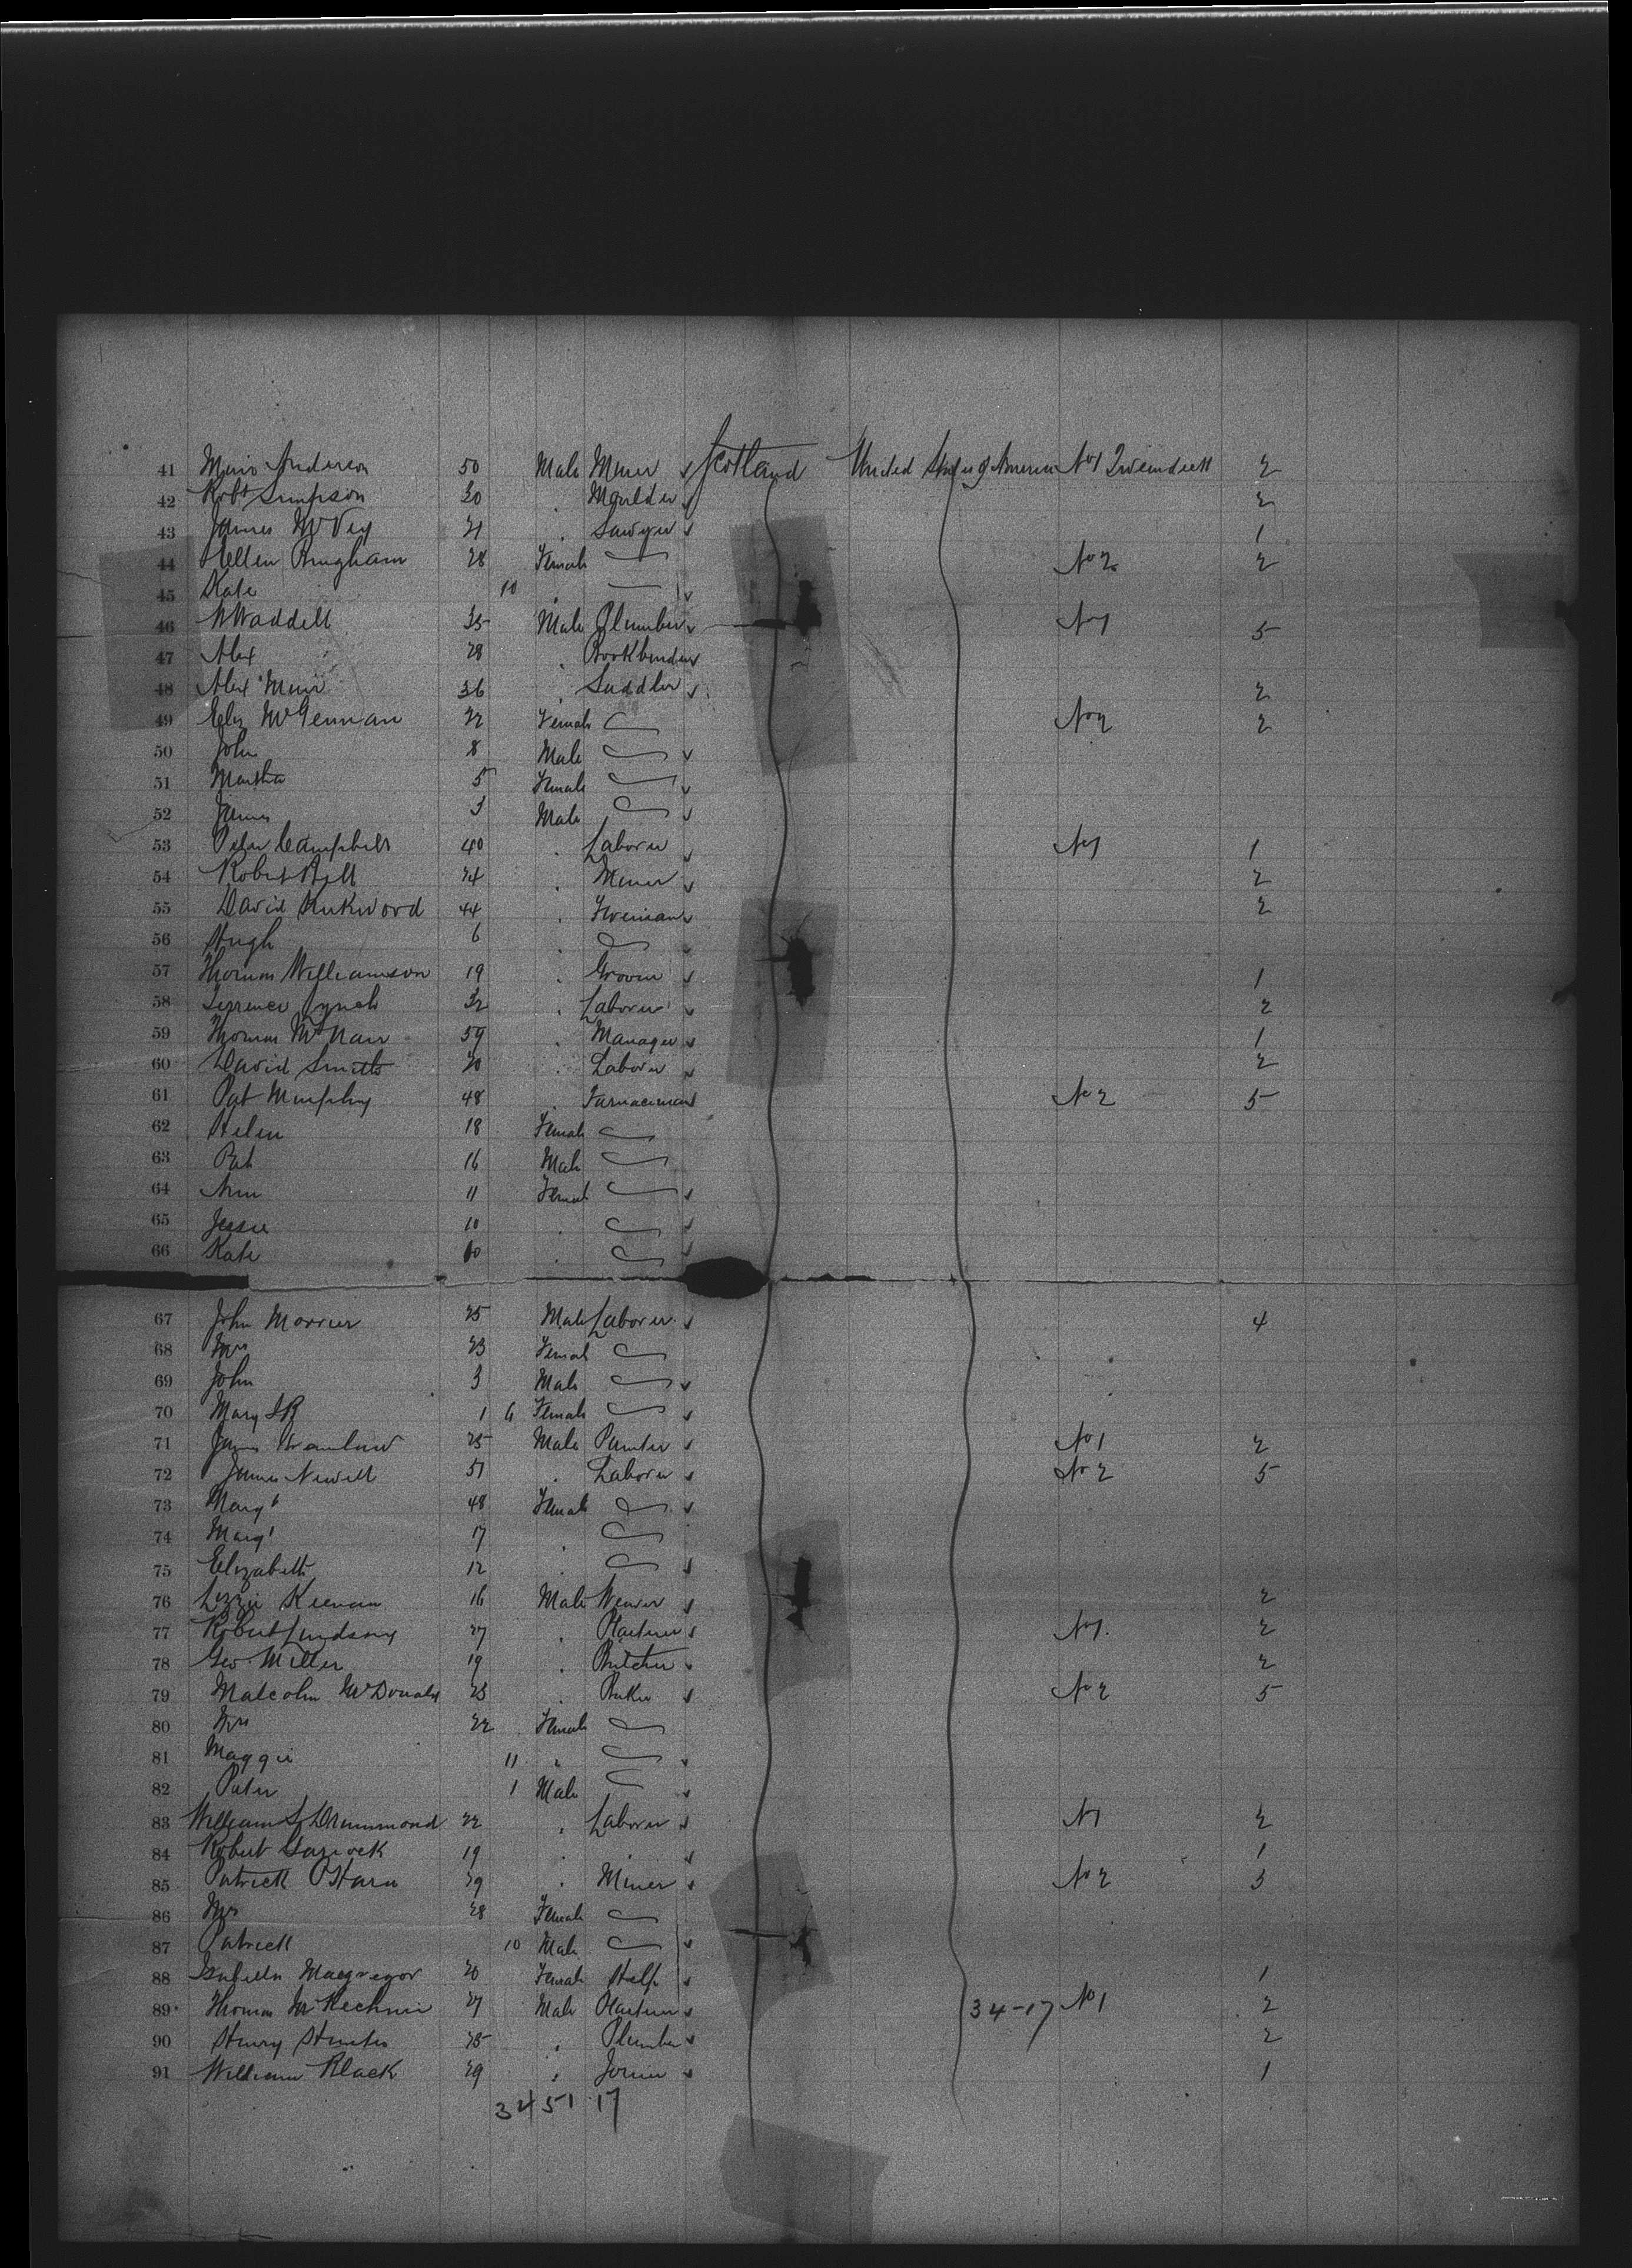 41 Muir Anderson 50 Male Miner Scotland United States of America No 1 'Tweendeck 2
42 Robt Simpson 30 " Moulder 2
43 James McVey 21 " Sawyer 1
44 Hellen Bingham 28 Female No 2 2
45 Kate 10 "
46 W Waddell 35 Male Plumber No 1 5
47 Alex 28 " Bookbinder
48 Alex Muir 36 " Saddler 2
49 Eliz McLennan 22 Female No 2 2
50 John 8 Male
51 Martha 5 Female
52 James 3 Male
53 Peter Campbell 40 " Laborer No 1 1
54 Robert Bell 24 " Miner 2
55 David Kirkwood 44 " Foreman 2
56 Hugh 6 "
57 Thomas Williamson 19 " Groom 1
58 Terrence Lynch 32 " Laborer 2
59 Thomas McNair 59 " Manager 1
60 David Smith 20 " Laborer 2
61 Pat Murphy 48 " Furnaceman No 2 5
62 Helen 18 Female
63 Pat 16 Male
64 Ann 11 Female
65 Jessie 10 "
66 Kate 10 "
67 John Morrier 25 Male Laborer 4
68 Mrs 23 Female
69 John 3 Male
70 Mary 1 6 Female
71 James 25 Male Painter No 1 2
72 James Newell 51 " Laborer No 2 5
73 Margt 48 Female
74 Margt 17 "
75 Elizabeth 12 "
76 Lizzie Keenan 16 Male Weaver 2
77 Robert Lindsay 27 " Plasterer No 1. 2
78 Geo. Miller 19 " Butcher 2
79 Malcolm McDonald 23 " Baker No 2 5
80 Mrs 22 Female
81 Maggie 11 "
82 Peter 1 Male
83 William S Drummond 22 " Laborer No 1 2
84 Robert 19 " " 1
85 Patrick O'Hara 29 " Miner No 2 3
86 Mrs 28 Female
87 Patrick 10 Male
88 Isabella Macgregor 20 Female Help 1
89 Thomas McKechnie 27 Male Plasterer 34-17 No 1 2
90 Henry Hunter 25 " Plumber 2
91 William Black 29 " Joiner 1
34 51 17